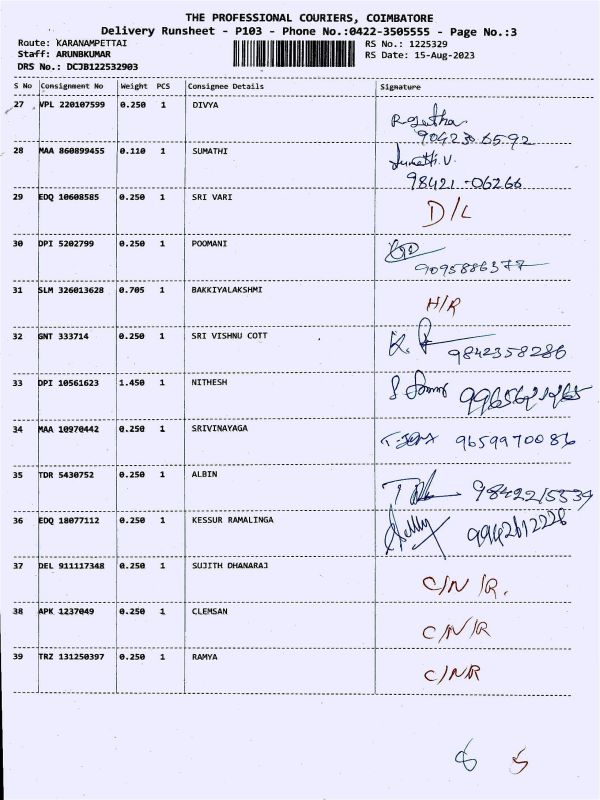 THE PROFESSIONAL COURIERS, COIMBATORE
Delivery Runsheet - P103 - Phone No.:0422-3505555 - Page No.:3
Route: KARANAMPETTAI RS No.: 1225329
Staff: ARUNBKUMAR RS Date: 15-Aug-2023
DRS No.: DCJB122532903
S No Consignment No Weight PCS Consignee Details Signature
27 VPL 220107599 0.250 1 DIVYA
90423 65 92
28 MAA 860899455 0.110 1 SUMATHI Sumathi.V.
98421-06266
29 EDQ 10608585 0.250 1 SRI VARI D/L
30 DPI 5202799 0.250 1 POOMANI
9095886377
31 SLM 326013628 0.705 1 BAKKIYALAKSHMI H/R
32 GNT 333714 0.250 1 SRI VISHNU COTT 9842358286
33 DPI 10561623 1.450 1 NITHESH
34 MAA 10970442 0.250 1 SRIVINAYAGA 9659970086
35 TDR 5430752 0.250 1 ALBIN 9842215539
36 EDQ 18077112 0.250 1 KESSUR RAMALINGA 9942612226
37 DEL 911117348 0.250 1 SUJITH DHANARAJ C/N/R.
38 APK 1237049 0.250 1 CLEMSAN C/N/R
39 TRZ 131250397 0.250 1 RAMYA C/NR
8 5